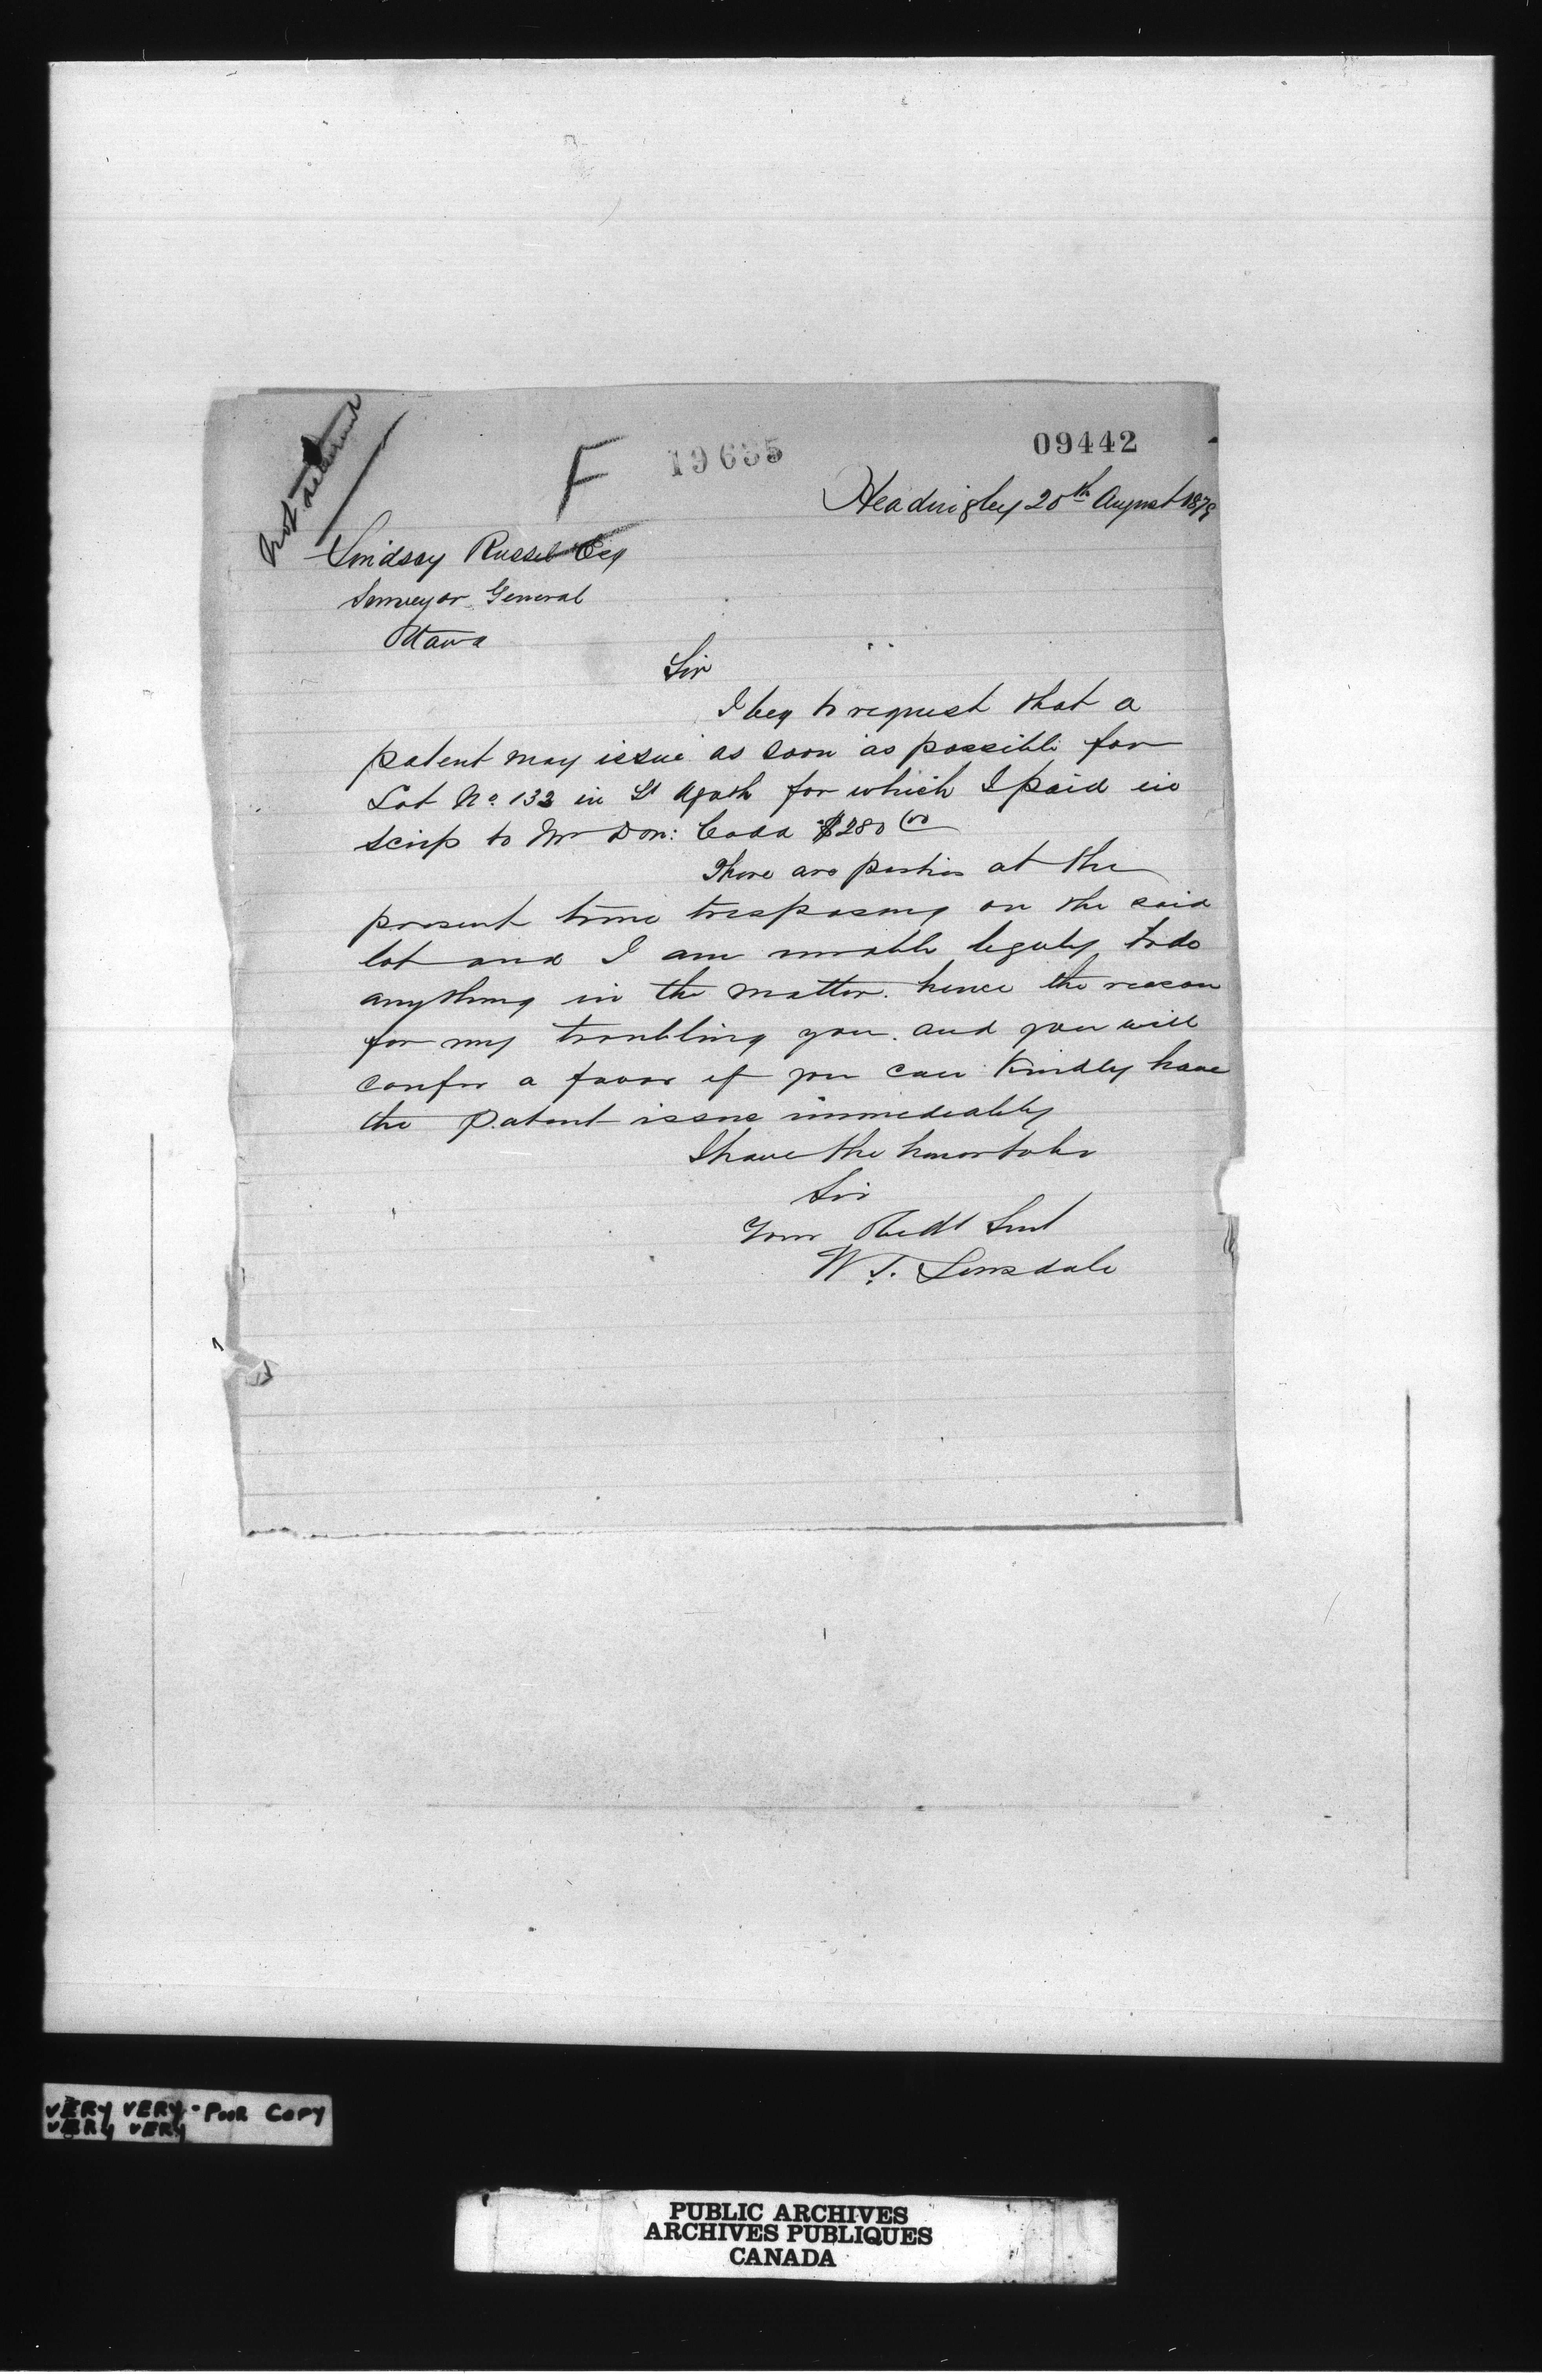 not
F
19635
09442
Headingley 20th August 1879
Lindsay Russel Esq
Surveyor General
Ottawa
Sir
I beg to request that a
patent may issue as soon as possible for
Lot No. 132 in St Agath for which I paid in
scrip to Mr Don: Codd $280 00
There are parties at the
present time trespasing on the said
lot and I am unable legaly to do
anything in the matter. hence the reason
for my troubling you. and you will
confer a favor if you can kindly have
the patent issue immediatly
I have the honor to be
Sir
Your Obedt Servt
W. J. Lonsdale
VERY VERY - POOR COPY
VERY VERY
PUBLIC ARCHIVES
ARCHIVES PUBLIQUES
CANADA